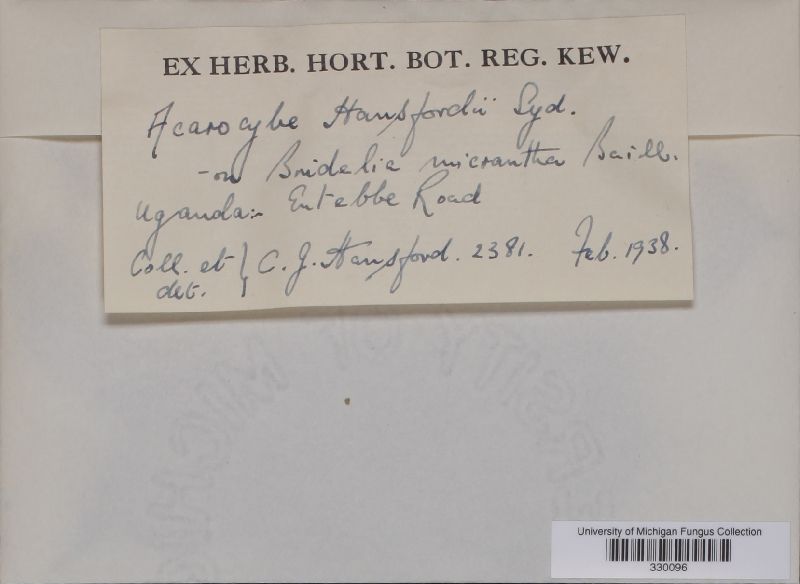 EX HERB. HORT. BOT. REG. KEW.
Acarocybe Hansfordii Syd.
- on Bridelia micrantha Baill.
Uganda:- Entebbe Road
Coll. et det. } C. G. Hansford. 2381. Feb. 1938.
University of Michigan Fungus Collection
330096